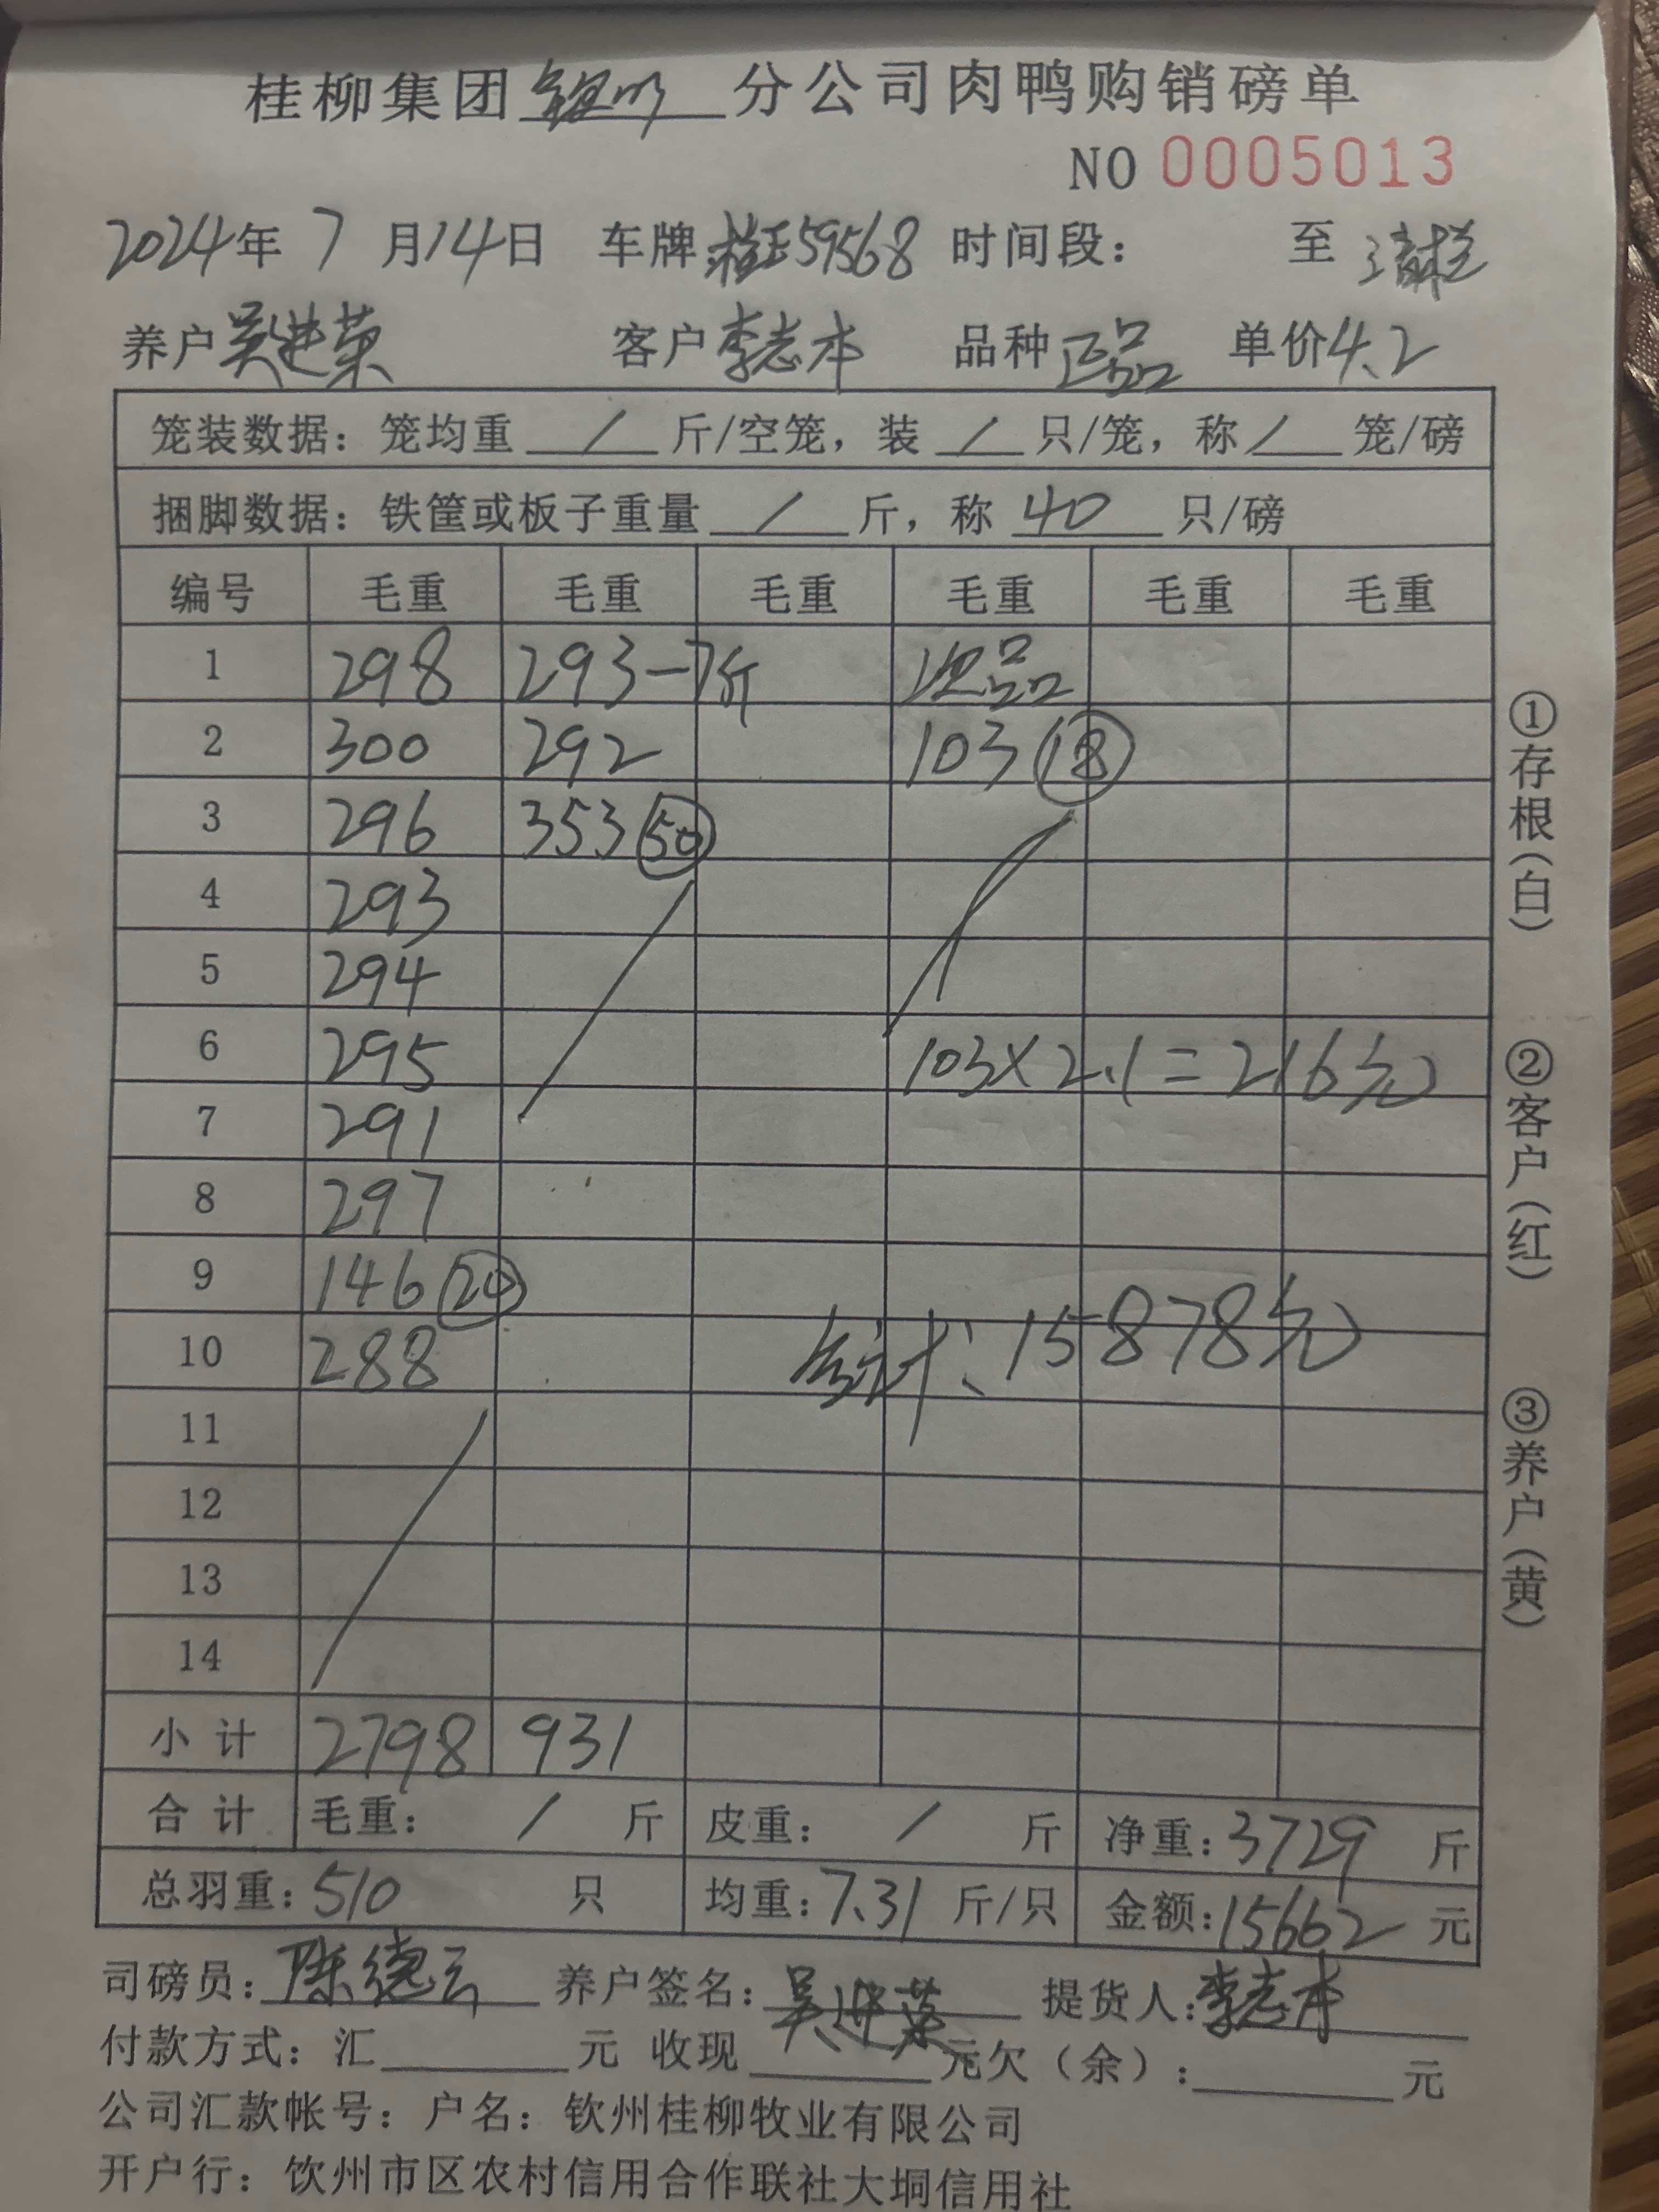 桂柳集团钦州分公司肉鸭购销磅单
NO 0005013
2024年 7 月14日 车牌:桂E59568 时间段: 至
养户 吴进荣 客户 李志本 品种 正品 单价4.2
笼装数据: 笼均重 / 斤/空笼, 装 / 只/笼, 称 / 笼/磅
捆脚数据: 铁筐或板子重量 / 斤, 称 40 只/磅
编号 毛重 毛重 毛重 毛重 毛重 毛重
1 298 293-7斤 次品
2 300 292 103 (18)
3 296 353 (50)
4 293
5 294
6 295 103×2.1=216元
7 291
8 297
9 146 (20)
10 288 合计:15878元
11
12
13
14
小计 2798 931
合计 毛重: / 斤 皮重: / 斤 净重:3729 斤
总羽重:510 只 均重:7.31 斤/只 金额:15662 元
司磅员:陈德云 养户签名:吴进荣 提货人:李志本
付款方式: 汇 元 收现 元欠(余): 元
公司汇款帐号: 户名: 钦州桂柳牧业有限公司
开户行: 饮州市区农村信用合作联社大垌信用社
①存根(白) ②客户(红) ③养户(黄)